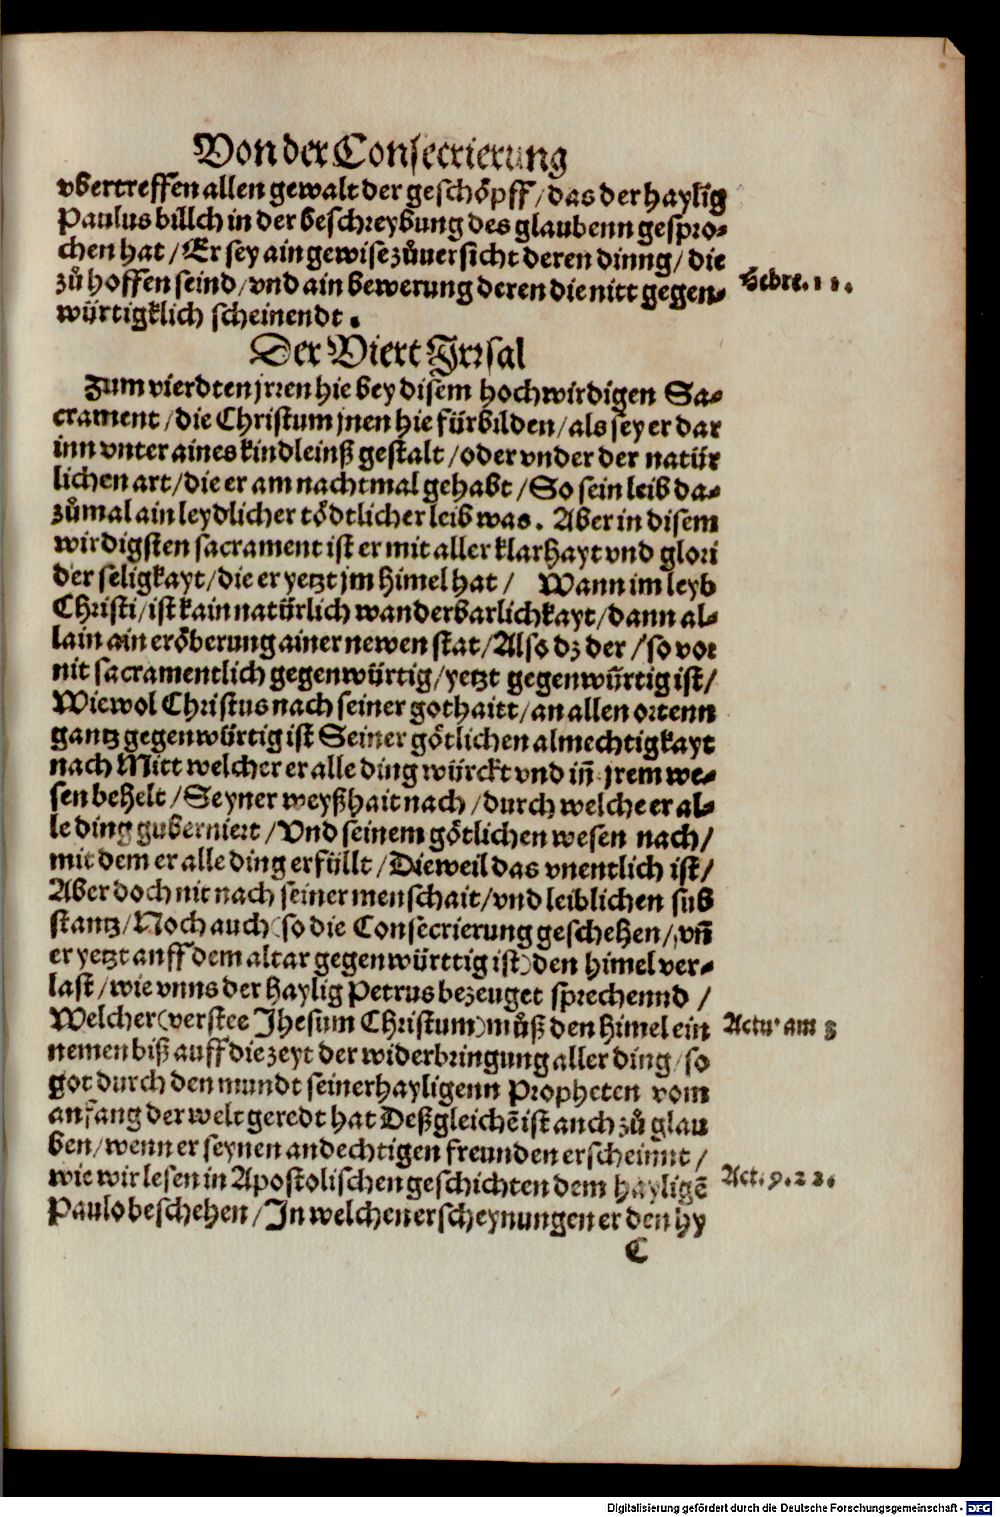 Von der Consecrierung
vbertreffen allen gewalt der geschöpff / das der haylig
Paulus billch in der beschreybung des glaubenn gespro⸗
chen hat / Er sey ain gewise zůuersicht deren dinng / die
zů hoffen seind / vnd ain bewerung deren die nitt gegen⸗
Hebre. 11.
würtigklich scheinendt.
Der Viert Jrrsal
Zum vierdten jrren hie bey disem hochwirdigen Sa⸗
crament / die Christum jnen hie fürbilden / als sey er dar
inn vnter aines kindleinß gestalt / oder vnder der natür
lichen art / die er am nachtmal gehabt / So sein leib da⸗
zůmal ain leydlicher tödtlicher leib was. Aber in disem
wirdigsten sacrament ist er mit aller klarhayt vnd glori
der seligkayt / die er yetzt jm himel hat / Wann im leyb
Christi / ist kain natürlich wanderbarlichkayt / dann al⸗
lain ain eröberung ainer newen stat / Also dz der / so vor
nit sacramentlich gegenwürtig / yetzt gegenwürtig ist /
Wiewol Christus nach seiner gothaitt / an allen ortenn
gantz gegenwürtig ist Seiner götlichen almechtigkayt
nach Mitt welcher er alle ding würckt vnd iñ jrem we⸗
sen behelt / Seyner weyßhait nach / durch welche er al⸗
le ding guberniert / Vnd seinem götlichen wesen nach /
mit dem er alle ding erfüllt / Dieweil das vnentlich ist /
Aber doch nit nach seiner menschait / vnd leiblichen sub
stantz / Noch auch (so die Consecrierung geschehen / vñ
er yetzt auff dem altar gegenwürttig ist) den himel ver⸗
last / wie vnns der haylig Petrus bezeuget sprechennd /
Welcher (verstee Jhesum Christum) můß den himel ein
Actu' am 3
nemen biß auff die zeyt der widerbringung aller ding / so
got durch den mundt seiner hayligenn Propheten vom
anfang der welt geredt hat Deßgleichẽ ist auch zů glau
ben / wenn er seynen andechtigen freunden erscheinnt /
wie wir lesen in Apostolischen geschichten dem hayligẽ
Act. 9. 22.
Paulo beschehen / Jn welchen erscheynungen er den hy
C
Digitalisierung gefördert durch die Deutsche Forschungsgemeinschaft - DFG